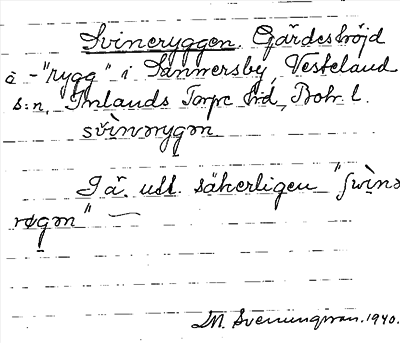 Svineryggen. Gärdeshöjd
å -"rygg" i Sannersby, Vesteland
s:n, Inlands Torpe hrd, Boh. l.
svìnərygən
I ä. utt. säkerligen "ʃwìnə
røgən"
M. Svenungsson. 1940.